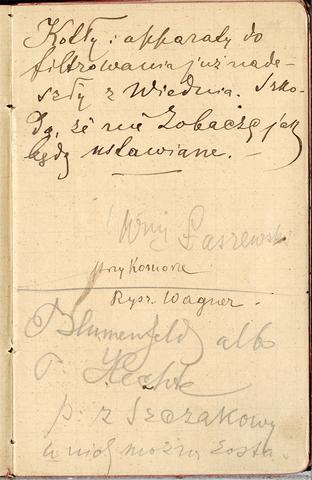 Kotły i apparaty do
filtrowania już nade-
szły z Wiednia. Szko-
da, że nie zobaczę jak
będą ustawiane. —
Wnij Laszewski
przy Komorze
Rysr. Wagner.
Blumenfeld albo
P. Hecht
p. z Szczakowy
u nich można zosta.